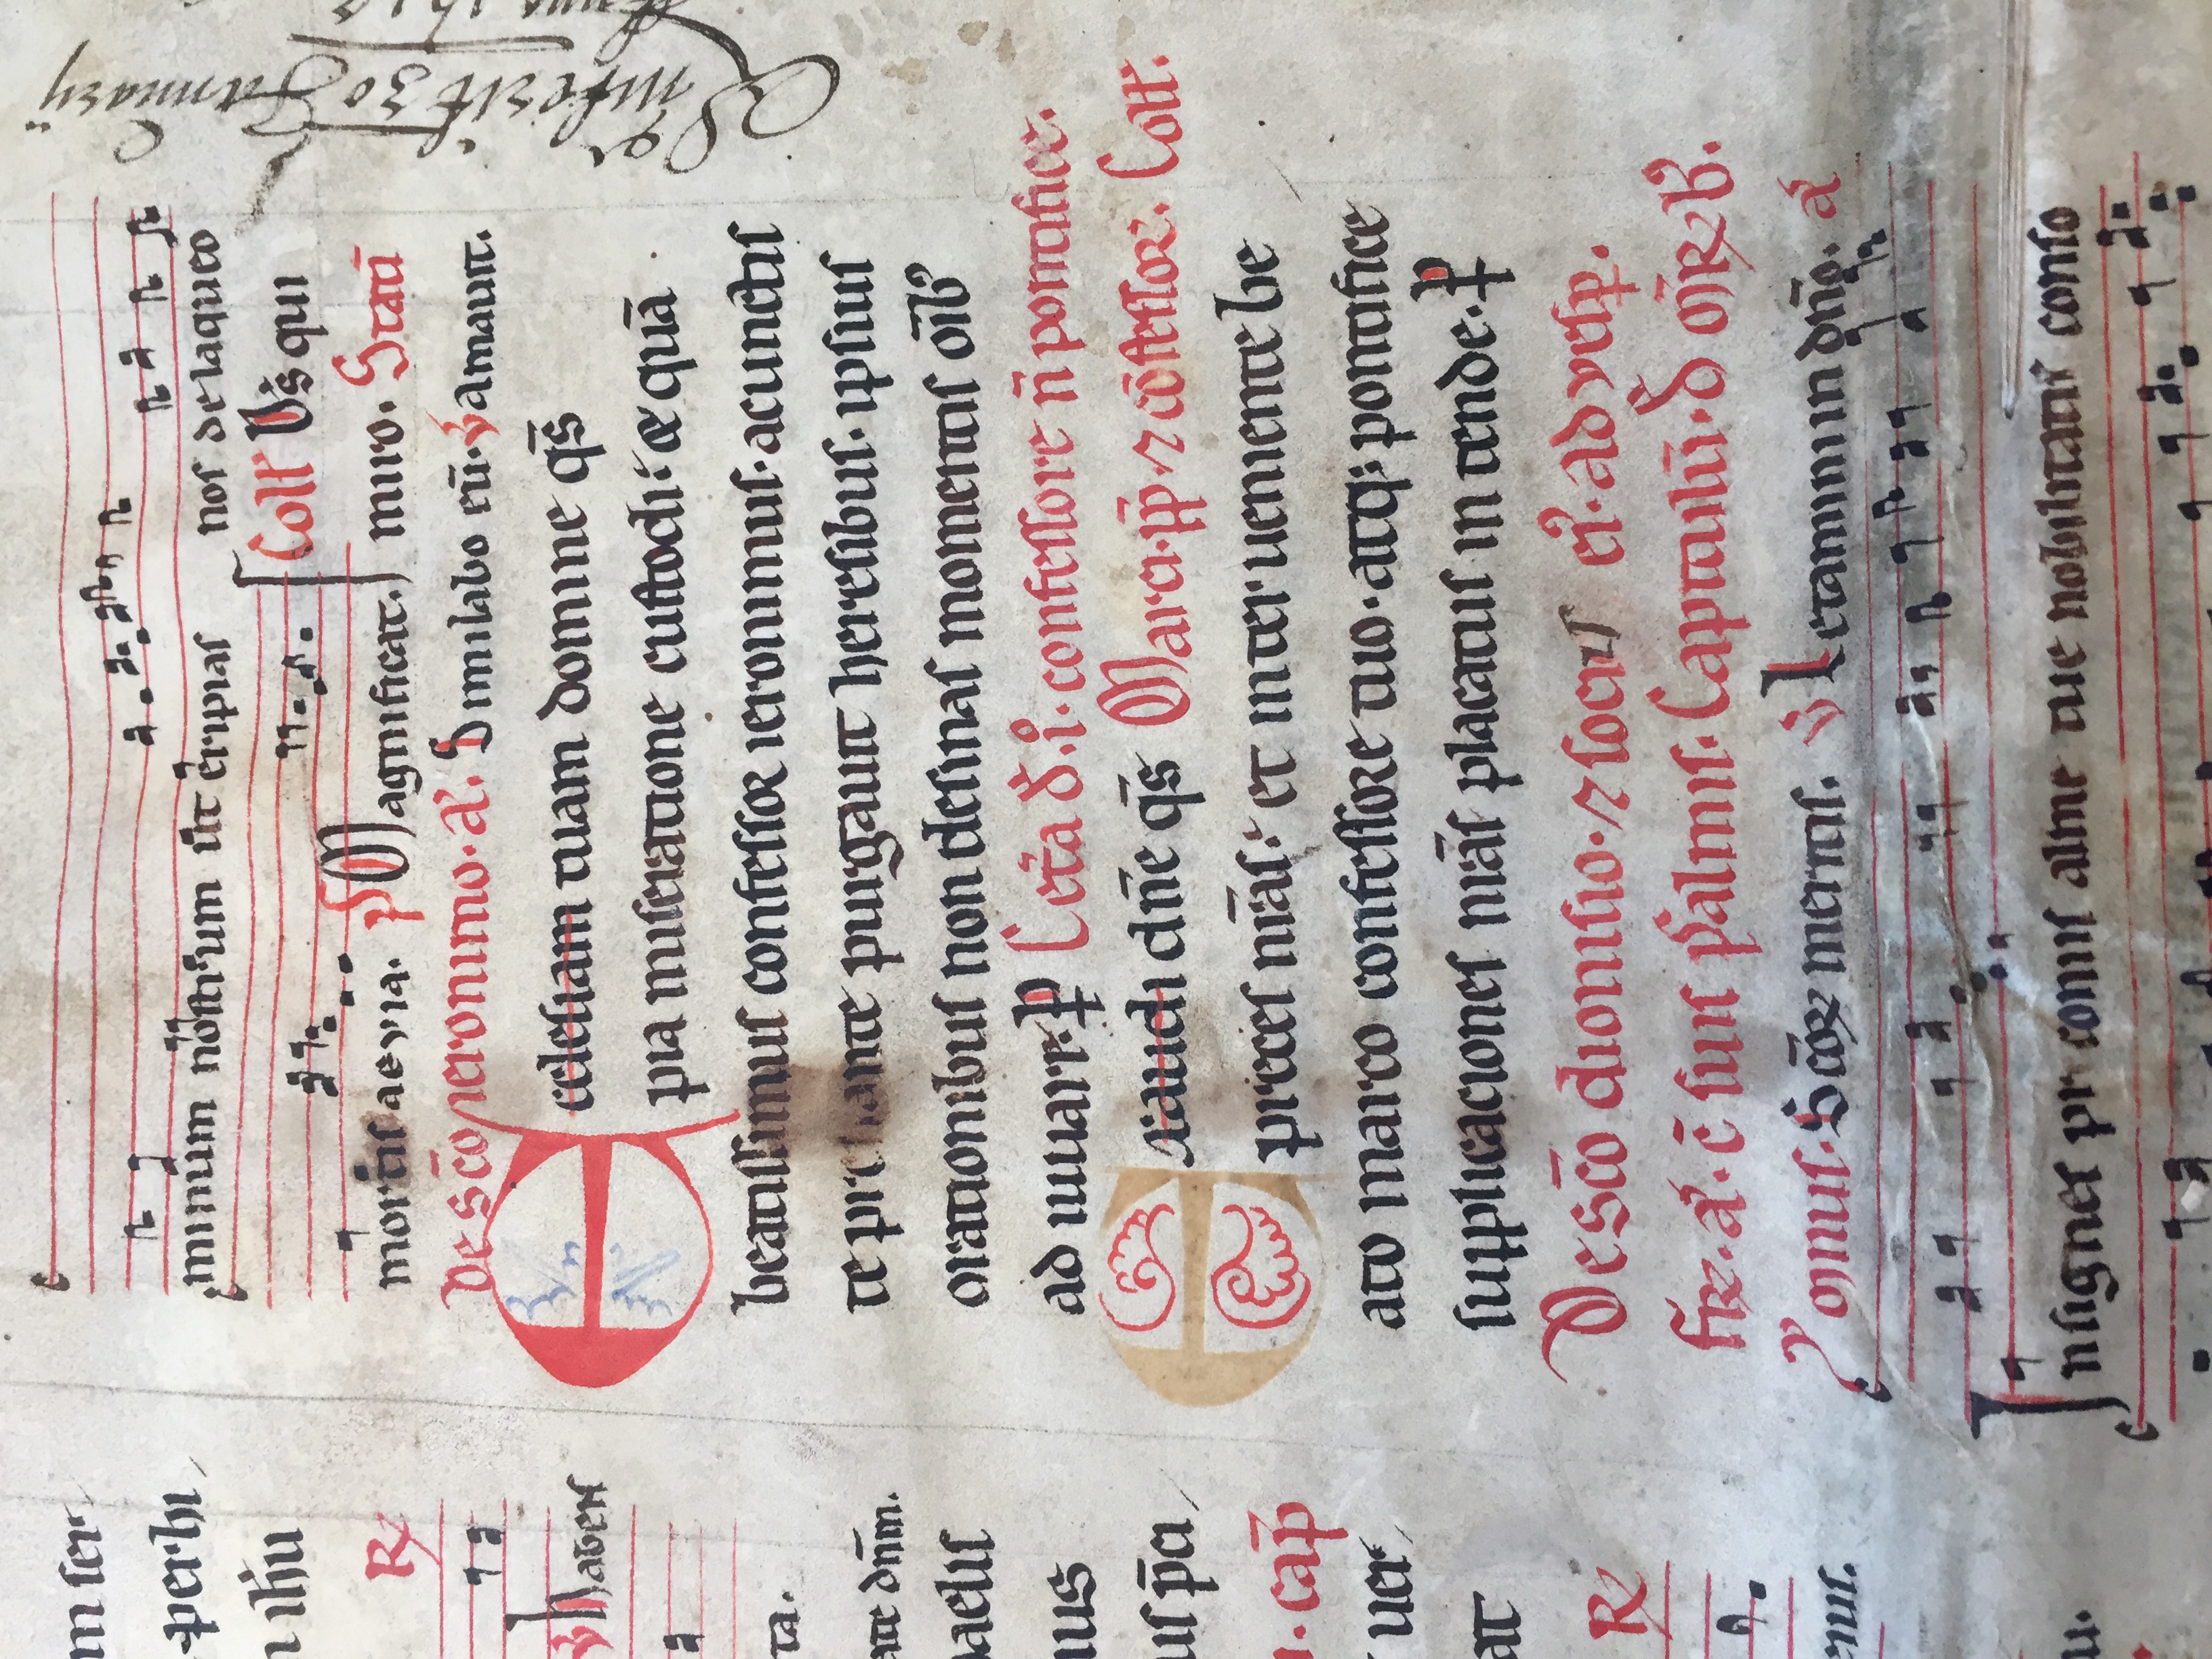 m ser
perhi
n ihu
R
haben
ta.
ate dn̄m.
aelis
us
us p̄ci
. cap̄
uer
at
R
enis.
u.
minum nostrum ut eripias nos de laqueo
Coll' D's qui
mortis aevia. ps Magnificat. miro. Statī
De sc̄o ieronimo. a. Similabo eū. v amauit.
Ecclesiam tuam domine qs̄
pia miseratione custodi: & quā
beatissimus confessor ieronimus. a cunctis
te pre ante purgauit heresibus. ipsius
orationibus non desinas momentis oīb'
ad iuuare. P Cet̄a d'. i. confessore n̄ pontifice.
Exaudi dn̄e qs̄ Marci. pp̄ ⁊ cōfessor'. Coll'.
preces nr̄as: et interueniente be
ato marco confessore tuo. atq; pontifice
supplicaciones nr̄as placatus in tende. P
De sc̄o dionisio. ⁊ sociis ei'. ad vesp.
a'. c̄ suis psalmis. Capitulū. d'
ymnus. Sc̄oꝝ meritis. v Letamini in dn̄o. a'
Insignes pr conus alme tue nobilitatis conso
30 Januarij